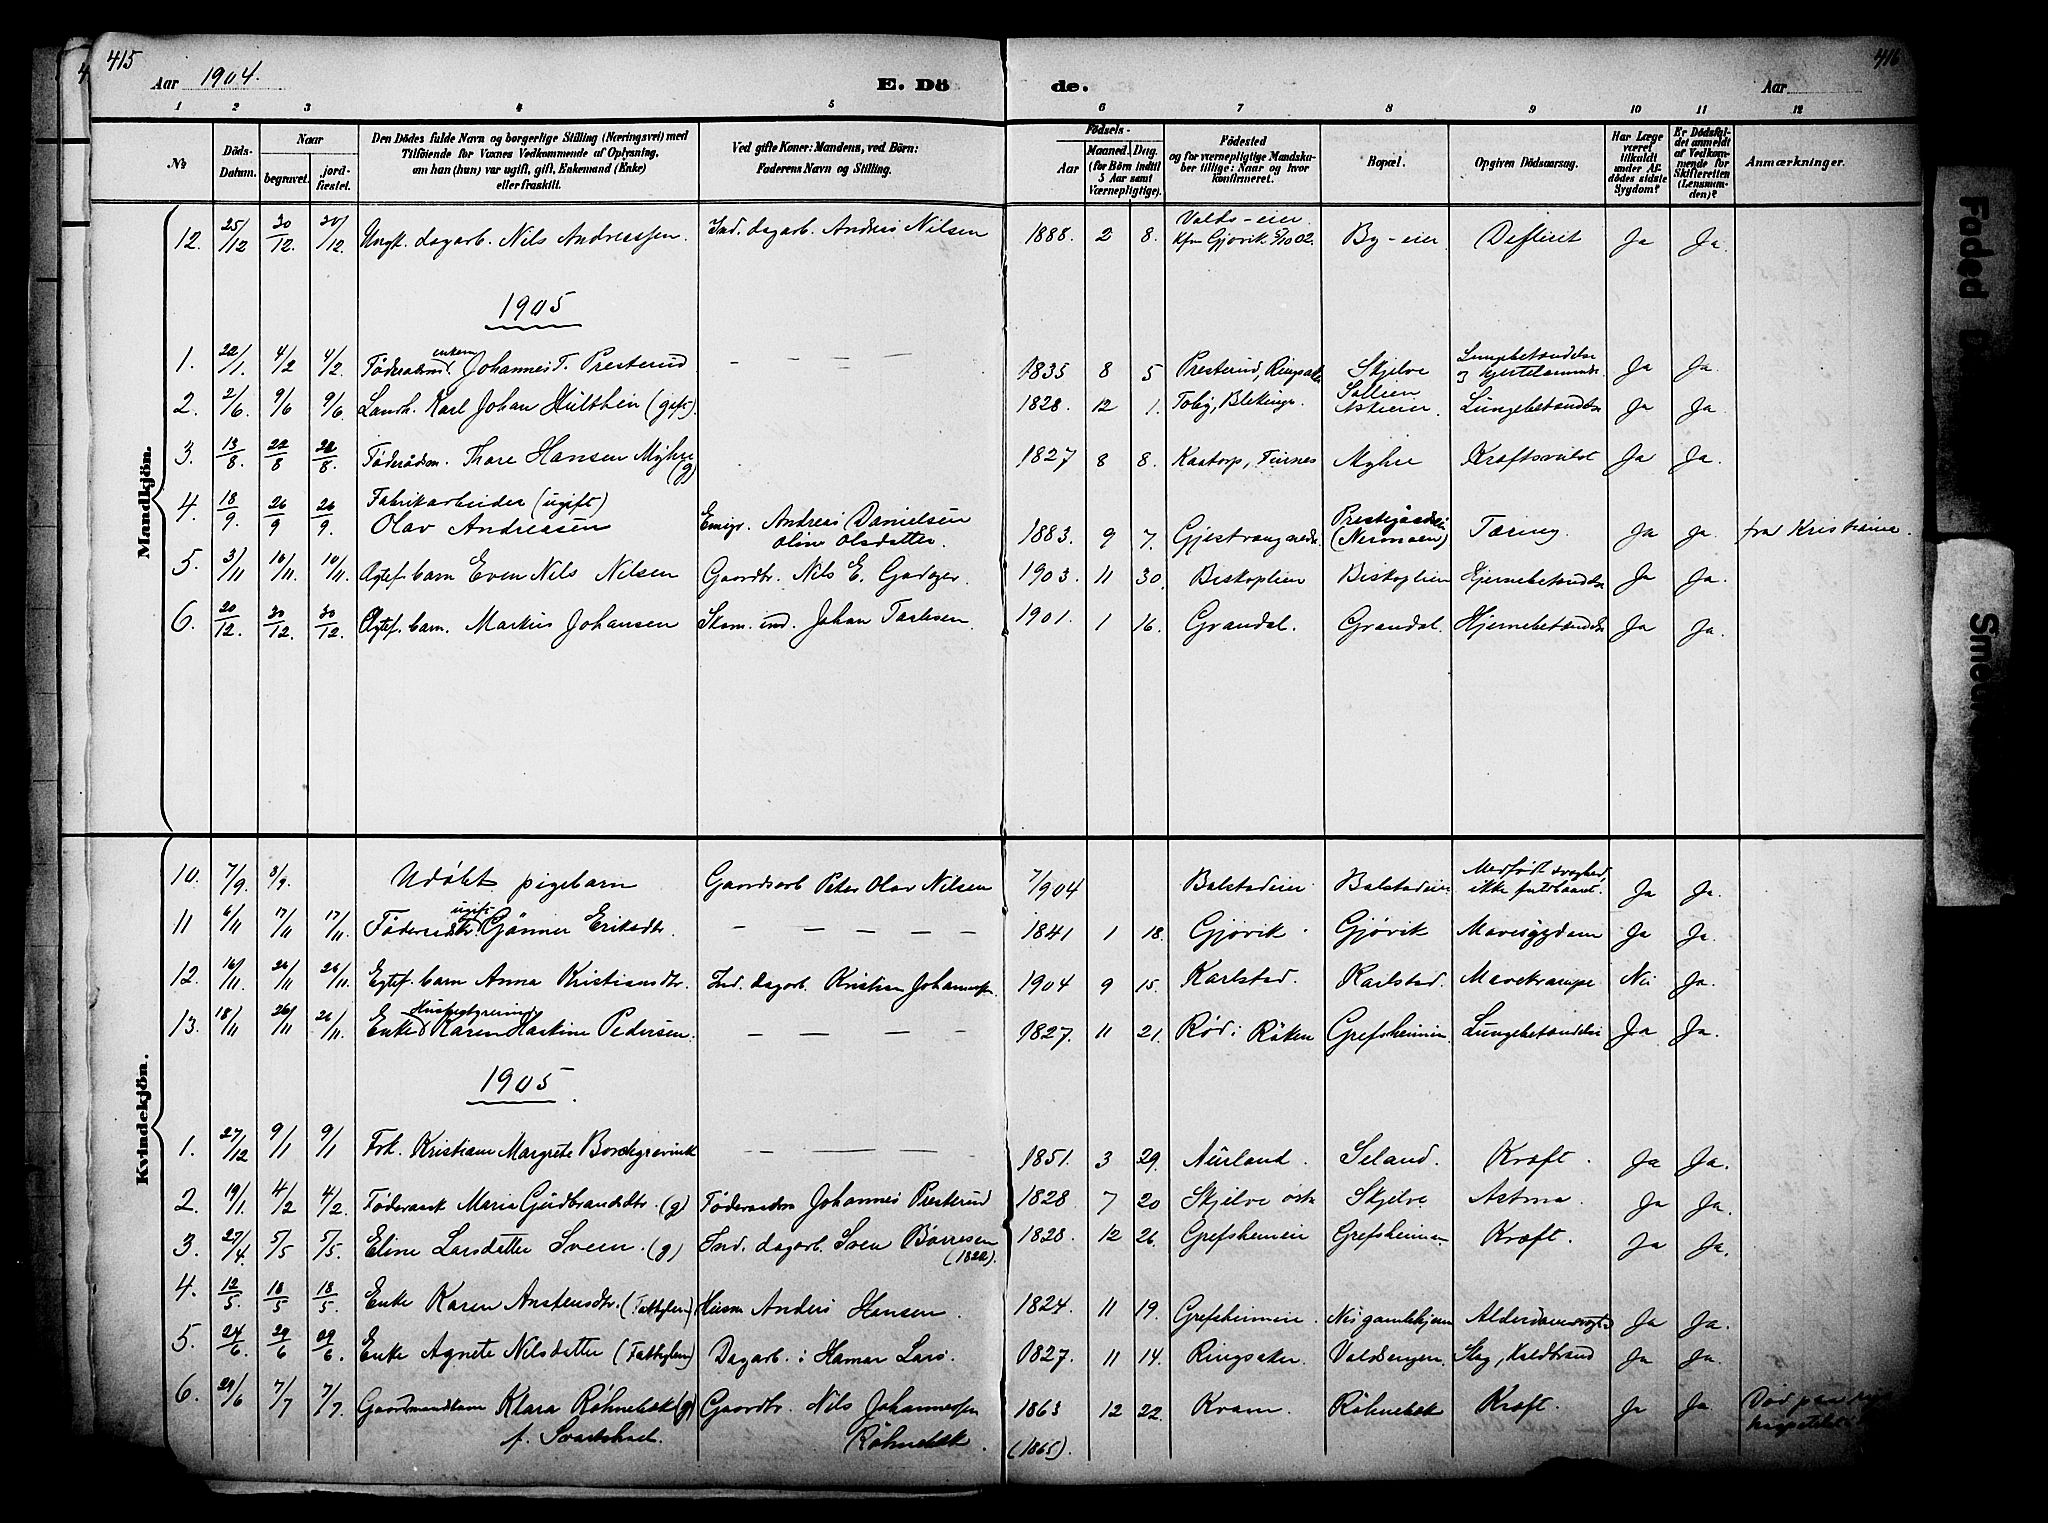 415
416
Aar 1904.
E. Dö
de.
Aar
1 2 3 4 5 6 7 8 9 10 11 12
No
Döds-Datum.
Naar
begravet.
jord-fæstet.
Den Dödes fulde Navn og borgerlige Stilling (Næringsvei) med
Tilföiende for Voxnes Vedkommende af Oplysning,
om han (hun) var ugift, gift, Enkemand (Enke)
eller fraskilt.
Ved gifte Koner: Mandens, ved Börn:
Faderens Navn og Stilling.
Födsels-
Aar
Maaned. Dag.
(for Börn indtil
5 Aar samt
Værnepligtige).
Födested
og for værnepligtige Mandska-
ber tillige: Naar og hvor
konfirmeret.
Bopæl.
Opgiven Dödsaarsag.
Har Læge
været
tilkaldt
under Af-
dödes sidste
Sygdom?
Er Dödsfal-
det anmeldt
af Vedkom-
mende for
Skifteretten
(Lensman-
den)?
Anmærkninger.
Mandkjön.
12. 25/12 30/12. 30/12. Ungk. dagarb. Nils Andreassen. Ind. dagarb. Andreas Nilsen 1888. 2 8. Valds-eier. Kfm Gjøvik 5/10 02. By-eier. Ja Ja.
1905
1. 22/1. 4/2 4/2. Føderaadsmd. enkem. Johannes T. Presterud — — — — 1835 8 5 Presterud, Ringsaker Skjelve Lungebetændelse og hjertelammelse. Ja Ja.
2. 2/6. 9/6 9/6 Landh. Karl Johan Hulthin (gift) 1828. 12 1. Toby, Blekinge. Lungebetændelse Ja Ja.
3. 13/8. 22/8 22/8. Føderådsm. Thore Hansen Myhre (g) 1827 8 8. Kaatorp, Furnes Myhre Kraftsvikt Ja Ja.
4. 18/9. 26/9 26/9. Fabrikarbeider (ugift) Olav Andreasen Emigr. Andreas Danielsen Oline Olsdatter. 1883. 9 7. Tæring Ja Ja. fra Kristiania.
5. 3/11 10/11. 10/11. Ægtef. barn Even Nils Nilsen Gaardbr. Nils E. 1903. 11 30. Biskoplien Biskoplien Hjernebetændelse Ja Ja.
6. 20/12. 30/12. 30/12. Ægtef. barn. Markus Johansen Skom. ind. Johan Tarlesen. 1901. 1 16. Grandal. Grandal. Hjernebetændelse Ja Ja.
Kvindekjön.
10. 7/9. 8/9. Udøbt pigebarn Gaardsarb Peter Olav Nilsen 7/904 Balstadeier. Balstadeier Medfødt svaghed, ikke fuldbaaret. Ja Ja.
11 6/11 17/11 17/11. Føderaadskr. ugift Gönner Eriksdtr. — — — — — 1841 1 18. Gjøvik. Gjøvik Mavesygdom Ja Ja.
12. 16/11. 26/11 26/11. Egtef. barn Anna Kristiansdtr. Ind. dagarb. Kristian Johannesen. 1904 9 15. Karlstad. Karlstad. Mavekrampe Nei Ja.
13. 18/11 26/11 26/11. Enke Husbestyrerinde Karen Hartine Pedersen. — — — — 1827. 11 21. Rød i Røken Grefsheimen. Lungebetændelse Ja Ja.
1905.
1. 27/12 9/1 9/1 Frk. Kristiane Margrete Borchgrevink — — — — 1851. 3 29. Aurland. Seland. Kræft. Ja Ja.
2. 19/1. 4/2 4/2. Føderaadk Maria Gudbrandsdtr. (g) Føderaadsm Johannes Presterud 1828 7 20 Skjelve østr Skjelve Astma. Ja Ja.
3. 27/4. 5/5 5/5. Eline Larsdatter Sveen. (g) Ind. dagarb. Sven Børresen (1822). 1828. 12 26. Grefsheimeie Grefsheimen. Kræft. Ja Ja.
4. 12/5. 18/5 18/5. Enke Karen Anstensdtr. (Fattiglem) Husm Anders Hansen. 1824. 11 19. Grefsheimeie. Nes gamlehjem Alderdomssvaghed Ja Ja.
5. 24/6. 29/6 29/6. Enke Agnete Nilsdatter (Fattiglem) Dagarb. i Hamar Lars. 1827. 11 14. Ringsaker. Valdbergen. Slag, Koldbrand Ja Ja.
6. 29/6 7/7 7/7. Gaardmandkone Klara Røhnebæk (g) f. Svartshod. Gaardbr. Nils Johannessen Røhnebæk. 1863 (1865). 12 22. Kvam. Røhnebæk Kræft. Ja Ja. Død paa